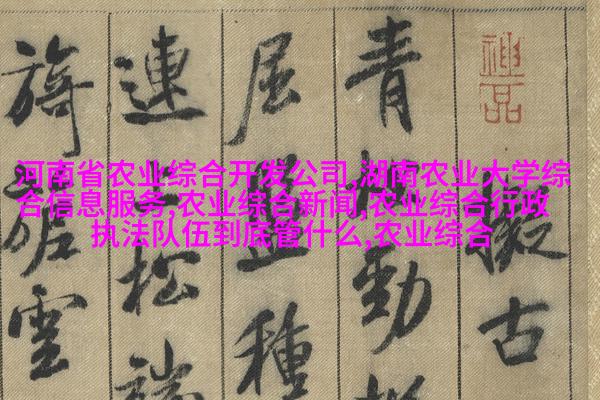 河南省农业综合开发公司,湖南农业大学综
合信息服务,农业综合新闻,农业综合行政
执法队伍到底管什么,农业综合
神品
擬古
青松勁挺
屈盤種
連上松端
旖旎雲